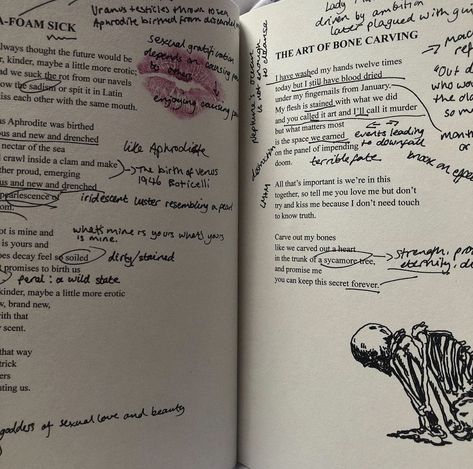 Uranus + testicles thrown to sea
Aphrodite birthed from discarded
A-FOAM SICK
always thought the future would be
r, kinder, maybe a little more erotic;
and we suck the rot from our navels
low the sadism or spit it in Latin
kiss each other with the same mouth.
sexual gratification
depends on causing pain
to others
enjoying causing pa
us Aphrodite was birthed
ous and new and drenched
nectar of the sea
l crawl inside a clam and make
ther proud, emerging
ous and new and drenched
opalescence of
om.
like Aphrodite
The birth of venus
1946 Boticelli
iridescent luster resembling a pearl
ot is mine and
is yours and
oes decay feel so soiled
promises to birth us
kinder, maybe a little more erotic
w, brand new,
with that
r scent.
what's mine is yours what's yours
is mine.
dirty/stained
feral: a wild state
that way
trick
ers
nting us.
goddess of sexual love and beauty
Lady Ma
driven by ambition
later plagued with gui
THE ART OF BONE CARVING
neptune's oceans
is not enough
to cleanse
I have washed my hands twelve times
today but I still have blood dried
under my fingernails from January.
My flesh is stained with what we did
and you called it art and I'll call it murder
but what matters most
is the space we earned
on the panel of impending
doom.
mac
re
"Out d
who wou
the old
so m
events leading
to downfall
terrible fate
All that's important is we're in this
together, so tell me you love me but don't
try and kiss me because I don't need touch
to know truth.
Carve out my bones
like we carved out a heart
in the trunk of a sycamore tree,
and promise me
you can keep this secret forever.
strength, pro
eternity, di